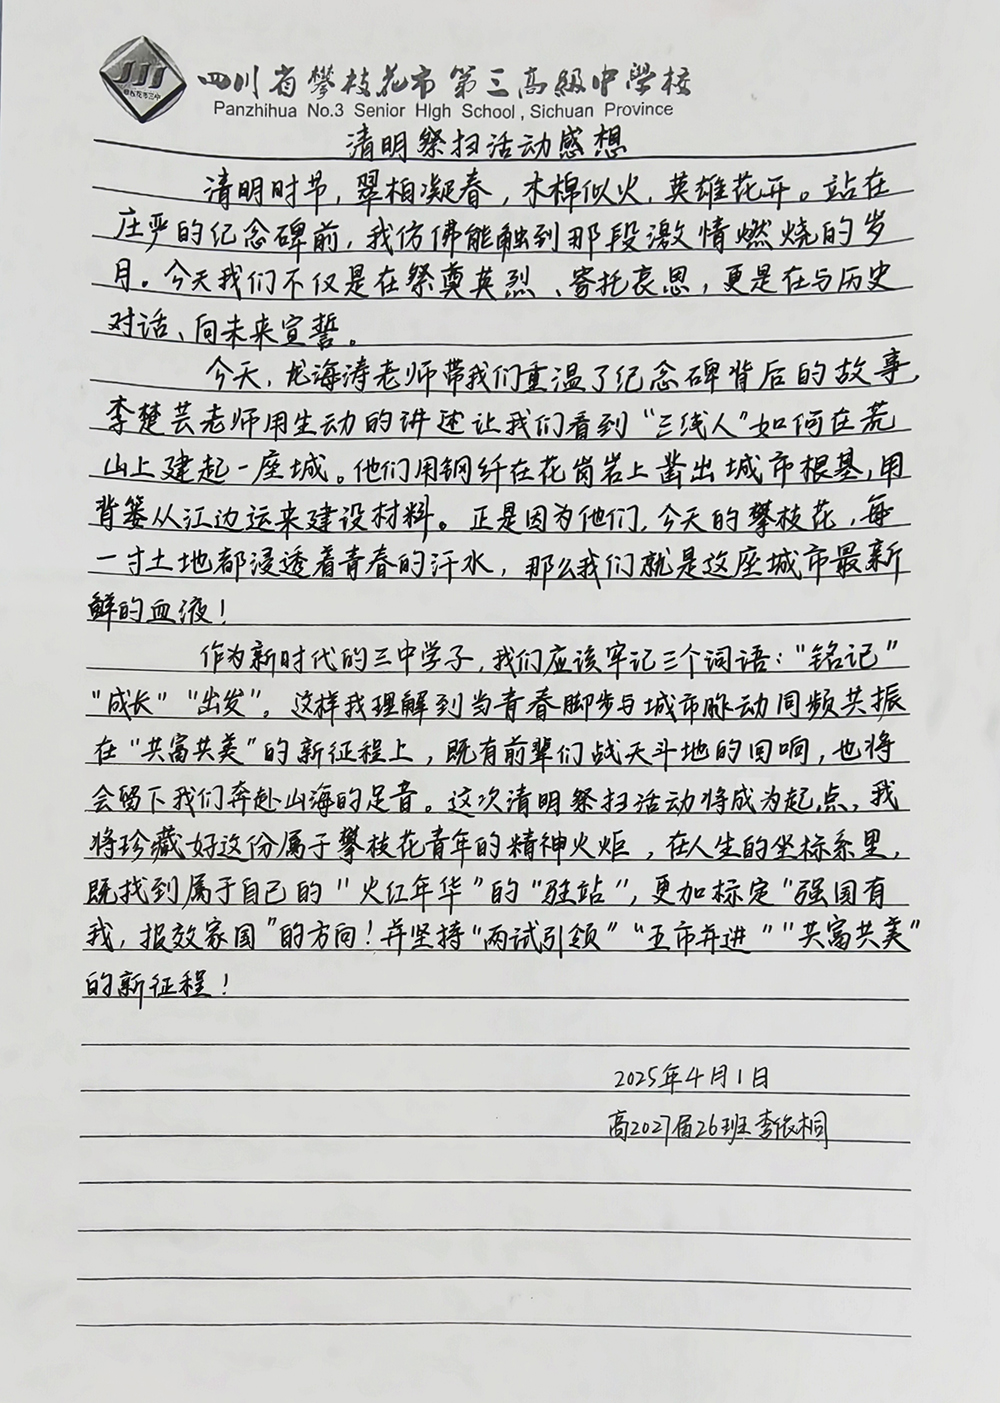 四川省攀枝花市第三高级中学校
Panzhihua No.3 Senior High School, Sichuan Province
清明祭扫活动感想
清明时节，翠柏凝春，木棉似火，英雄花开。站在
庄严的纪念碑前，我仿佛能触到那段激情燃烧的岁
月。今天我们不仅是在祭奠英烈、寄托哀思，更是在与历史
对话、向未来宣誓。
今天，龙海涛老师带我们重温了纪念碑背后的故事，
李楚芸老师用生动的讲述让我们看到“三线人”如何在荒
山上建起一座城。他们用钢钎在花岗岩上凿出城市根基，用
背篓从江边运来建设材料。正是因为他们，今天的攀枝花，每
一寸土地都浸透着青春的汗水，那么我们就是这座城市最新
鲜的血液！
作为新时代的三中学子，我们应该牢记三个词语：“铭记”
“成长”“出发”。这样我理解到当青春脚步与城市脉动同频共振
在“共富共美”的新征程上，既有前辈们战天斗地的回响，也将
会留下我们奔赴山海的足音。这次清明祭扫活动将成为起点，我
将珍藏好这份属于攀枝花青年的精神火炬，在人生的坐标系里，
既找到属于自己的“火红年华”的“驻站”，更加标定“强国有
我，报效家国”的方向！并坚持“两试引领”“五市并进”“共富共美”
的新征程！
2025年4月1日
高2027届26班李依桐